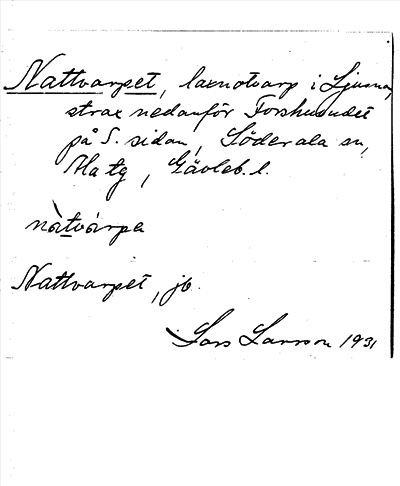 Nattvarpet, laxnotvarp i Ljusnan,
strax nedanför Forshusudet
på S. sidan, Söderala sn,
Ala tg, Gävleb. l.
nàtvárpa
Nattvarpet, jb.
Lars Larsson 1931